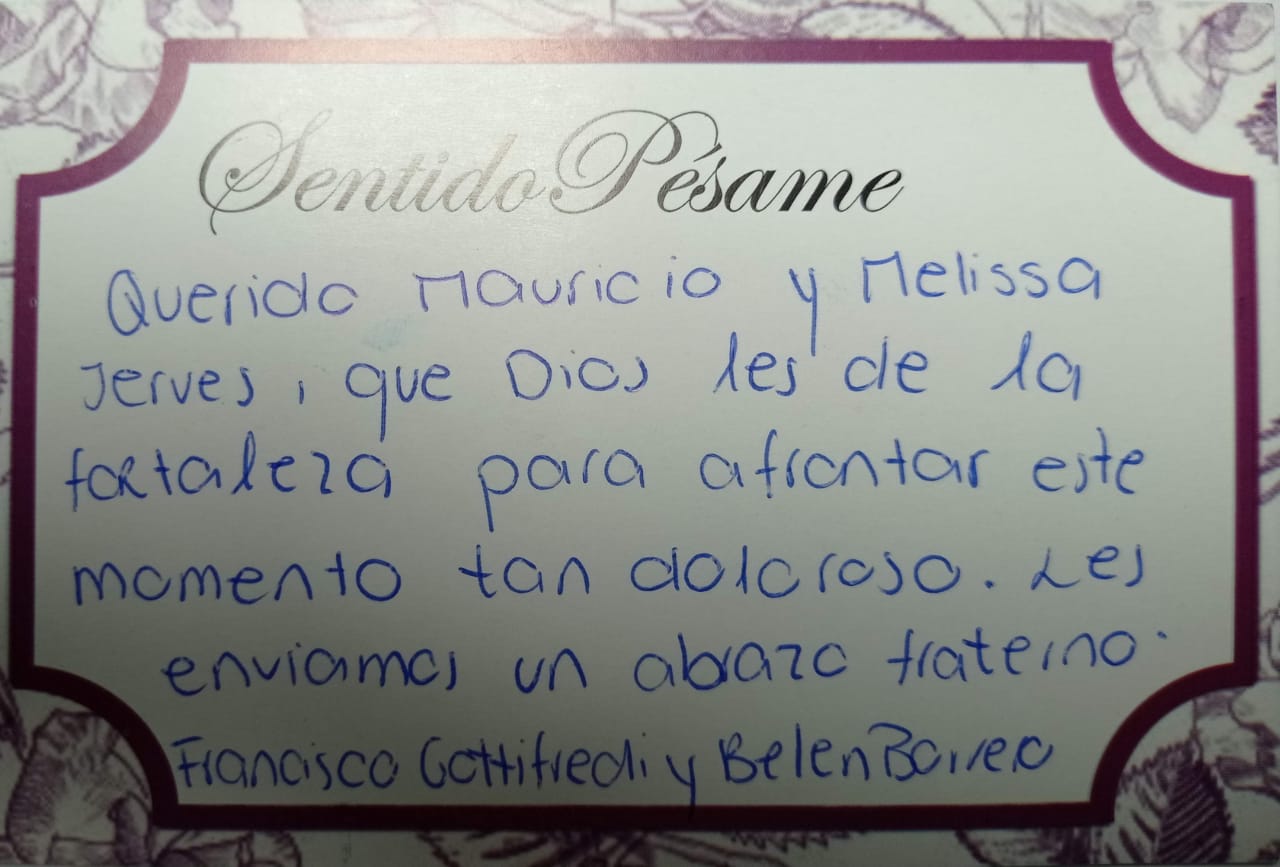 Sentido Pésame
Querido Mauricio y Melissa
Jerves, que Dios les de la
fortaleza para afrontar este
momento tan doloroso. Les
enviamos un abrazo fraterno.
Francisco Gottifredi y Belen